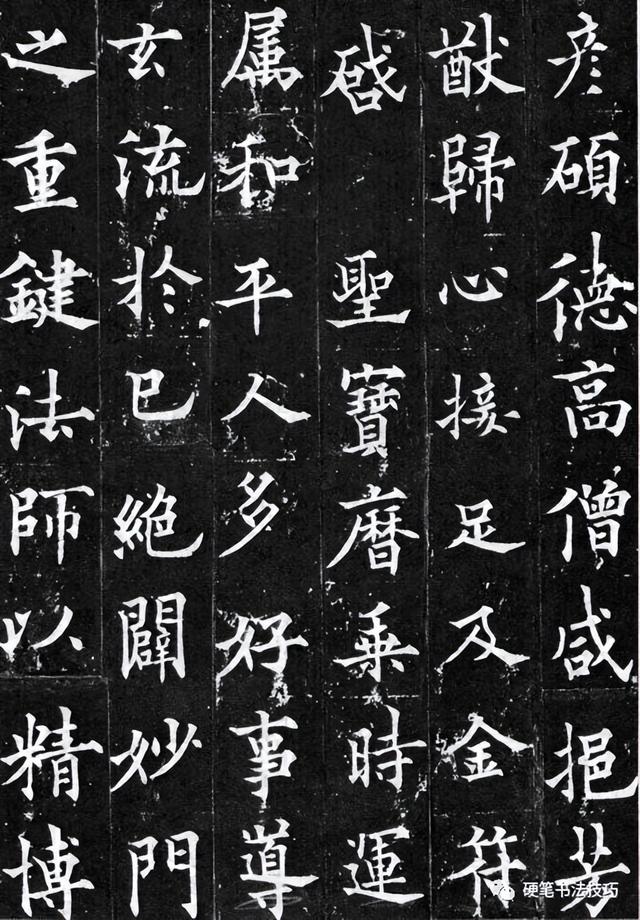 彦碩德高僧咸挹芳
猷歸心接足及金符
啓聖寶曆乘時運
属和平人多好事導
玄流於已絕闢妙門
之重鍵法師以精博
硬笔书法技巧